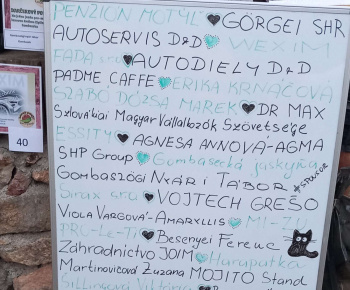 PENZIÓN MOTÝĽ GÖRGEI SHR
AUTOSERVIS D&D WEXIM
FADA sro AUTODIELY D&D
PADME CAFFE ERIKA KRNÁČOVÁ
SZABÓ DÓZSA MAREK DR MAX
Szlovákiai Magyar Vállalkozók Szövetsége
ESSITY AGNESA ANNOVÁ-AGMA
SHP Group Gombasecká jaskyňa
GOMBASZÖGI NYÁRI TÁBOR #SPONZOR
sro VOJTECH GREŠO
VIOLA VARGOVÁ-AMARYLLIS MI-ZU
PRC-LE-TI Besenyei Ferenc
Záhradníctvo JOIM Harapatka
Martinovicová Zuzana MOJITO Stand
Viktória
40